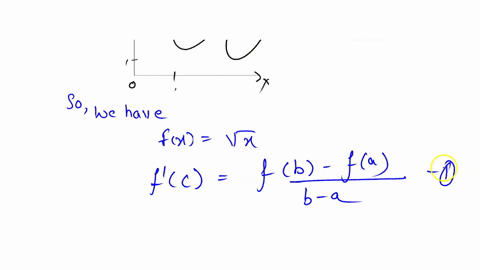 1
0
1
x
So, we have
f(x) = √x
f'(c) = f(b) - f(a) / b-a - ①